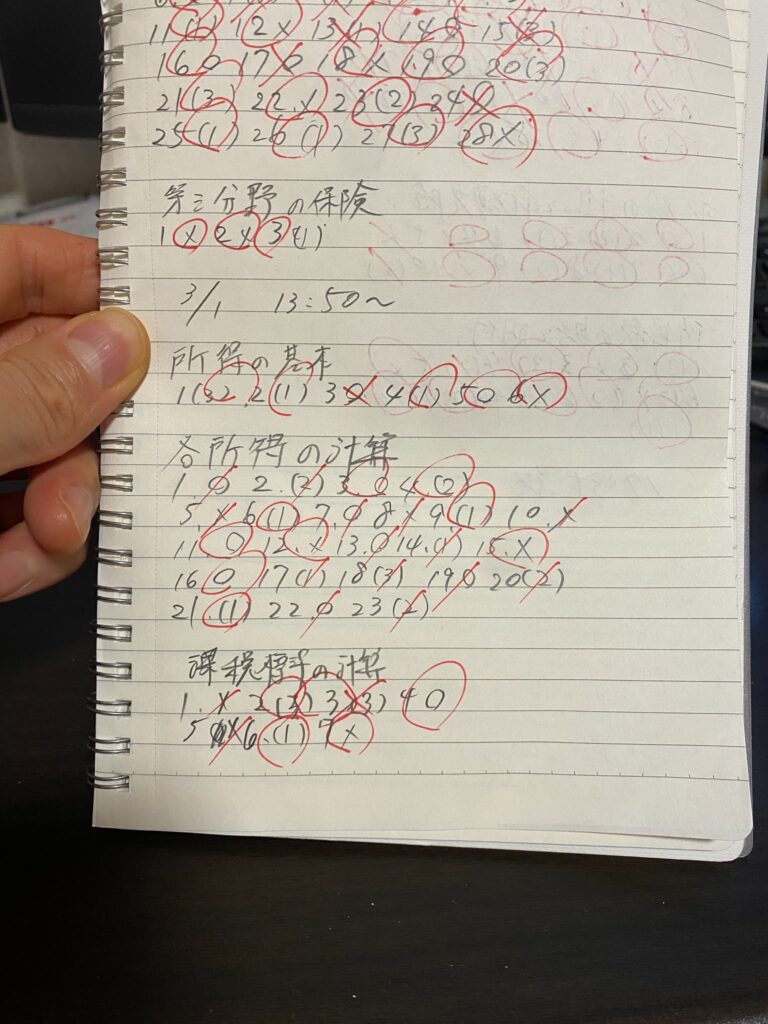 11(1) 12× 13(1) 140 15(3)
160 170 18× 190 20(3)
21(3) 22.× 23(2) 240
25(1) 26(1) 27(3) 28×
第三分野の保険
1× 2× 3(1)
3/1 13:50〜
所得の基本
2(1) 30 4(1) 50 6×
各所得の計算
1.0 2.(2) 3.0 4(2)
5.× 6(1) 7.0 8× 9(1) 10.×
11 0 12.× 13.0 14.(1) 15.×
16 0 17(1) 18(3) 190 20(2)
21.(1) 22.0 23(2)
の計算
1.× 2(3) 3(3) 40
5 × 6.(1) 7×